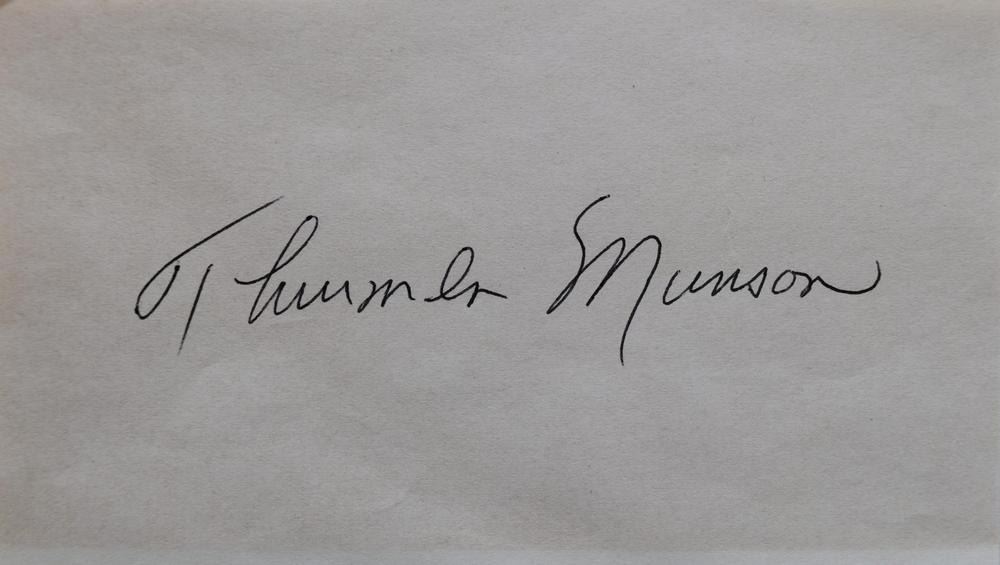 Thurman Munson